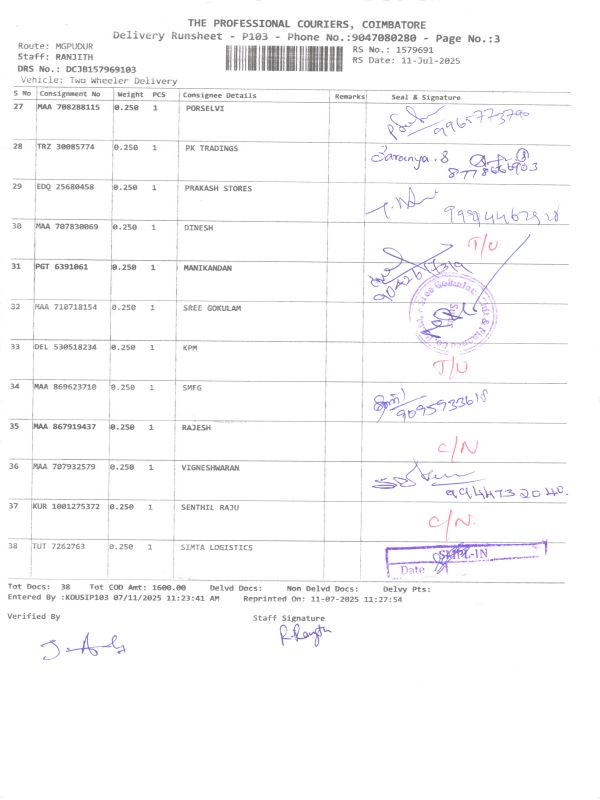 THE PROFESSIONAL COURIERS, COIMBATORE
Delivery Runsheet - P103 - Phone No.:9047080280 - Page No.:3
Route: MGPUDUR
RS No.: 1579691
Staff: RANJITH
RS Date: 11-Jul-2025
DRS No.: DCJB157969103
Vehicle: Two Wheeler Delivery
S No Consignment No Weight PCS Consignee Details Remarks Seal & Signature
27 MAA 708288115 0.250 1 PORSELVI 9965773790
28 TRZ 30085774 0.250 1 PK TRADINGS Saranya.S
29 EDQ 25680458 0.250 1 PRAKASH STORES
30 MAA 707830069 0.250 1 DINESH T/U
31 PGT 6391061 0.250 1 MANIKANDAN
32 MAA 710718154 0.250 1 SREE GOKULAM
33 DEL 530518234 0.250 1 KPM T/U
34 MAA 869623710 0.250 1 SMFG 9095933618
35 MAA 867919437 0.250 1 RAJESH C/N
36 MAA 707932579 0.250 1 VIGNESHWARAN 9944732040.
37 KUR 1001275372 0.250 1 SENTHIL RAJU C/N.
38 TUT 7262763 0.250 1 SIMTA LOGISTICS SMPL-IN
Date
Tot Docs: 38 Tot COD Amt: 1600.00 Delvd Docs: Non Delvd Docs: Delvy Pts:
Entered By :KOUSIP103 07/11/2025 11:23:41 AM Reprinted On: 11-07-2025 11:27:54
Verified By Staff Signature